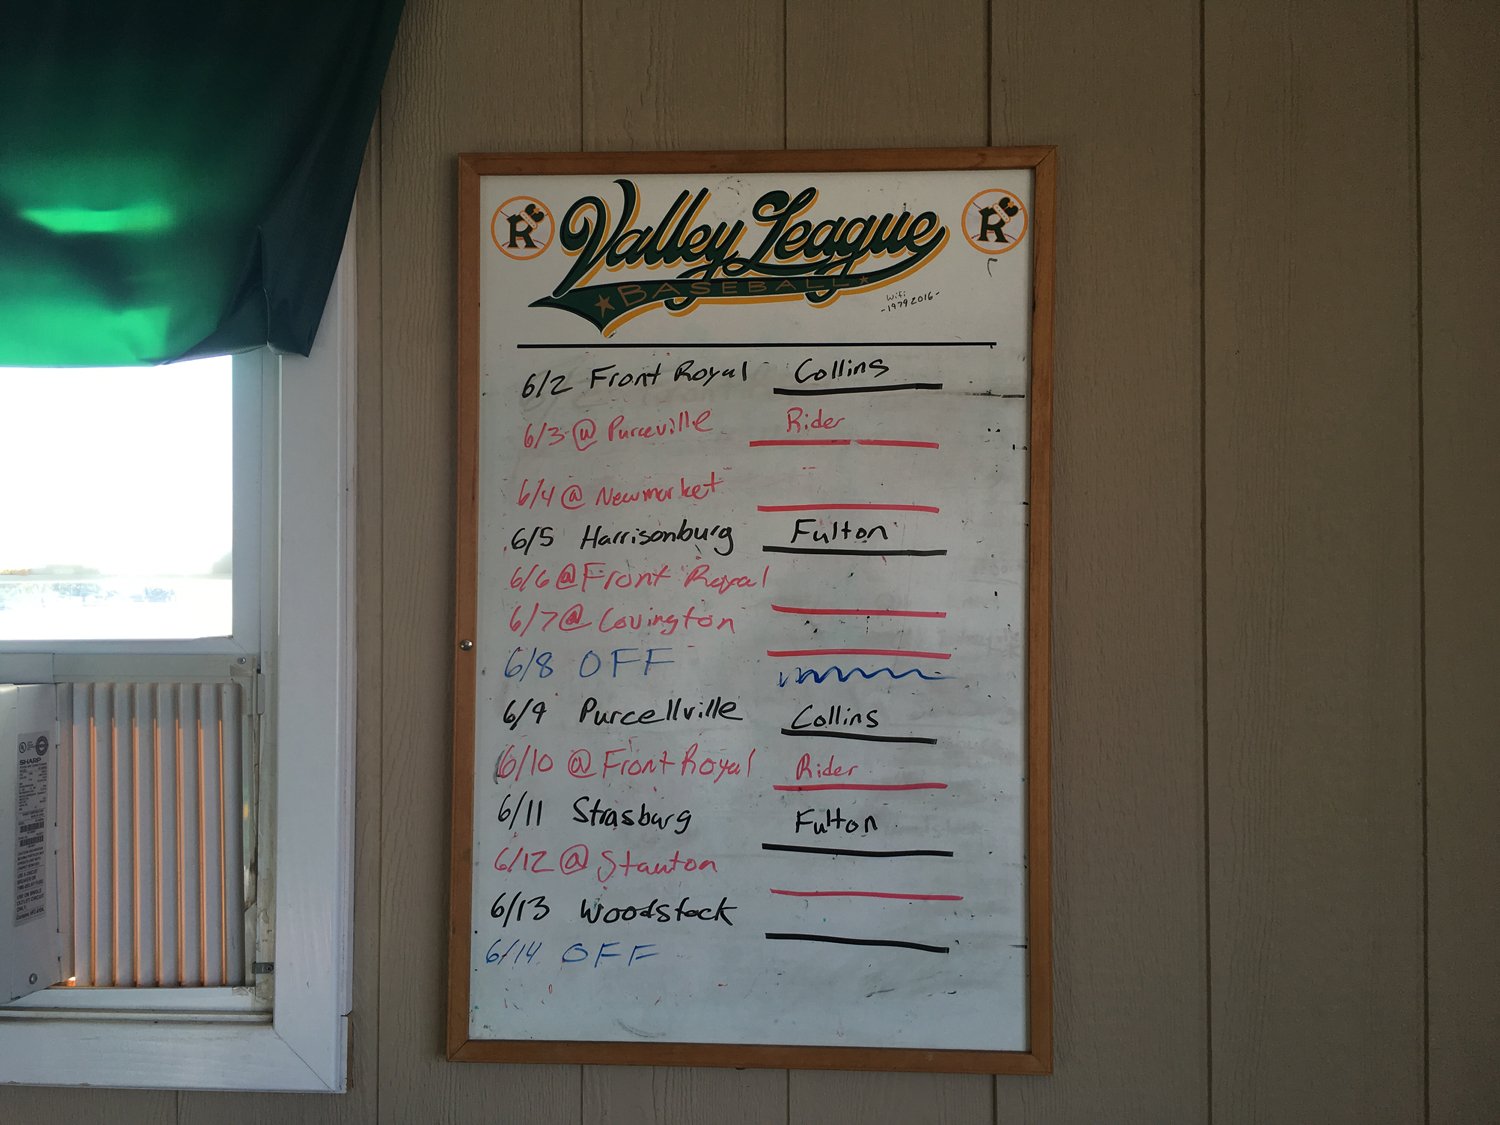 Valley League
BASEBALL
Wifi
-19792016-
6/2 Front Royal Collins
6/3 @ Purceville Rider
6/4 @ Newmarket
6/5 Harrisonburg Fulton
6/6 @ Front Royal
6/7 @ Covington
6/8 OFF
6/9 Purcellville Collins
6/10 @ Front Royal Rider
6/11 Strasburg Fulton
6/12 @ Stauton
6/13 Woodstock
6/14 OFF
SHARP